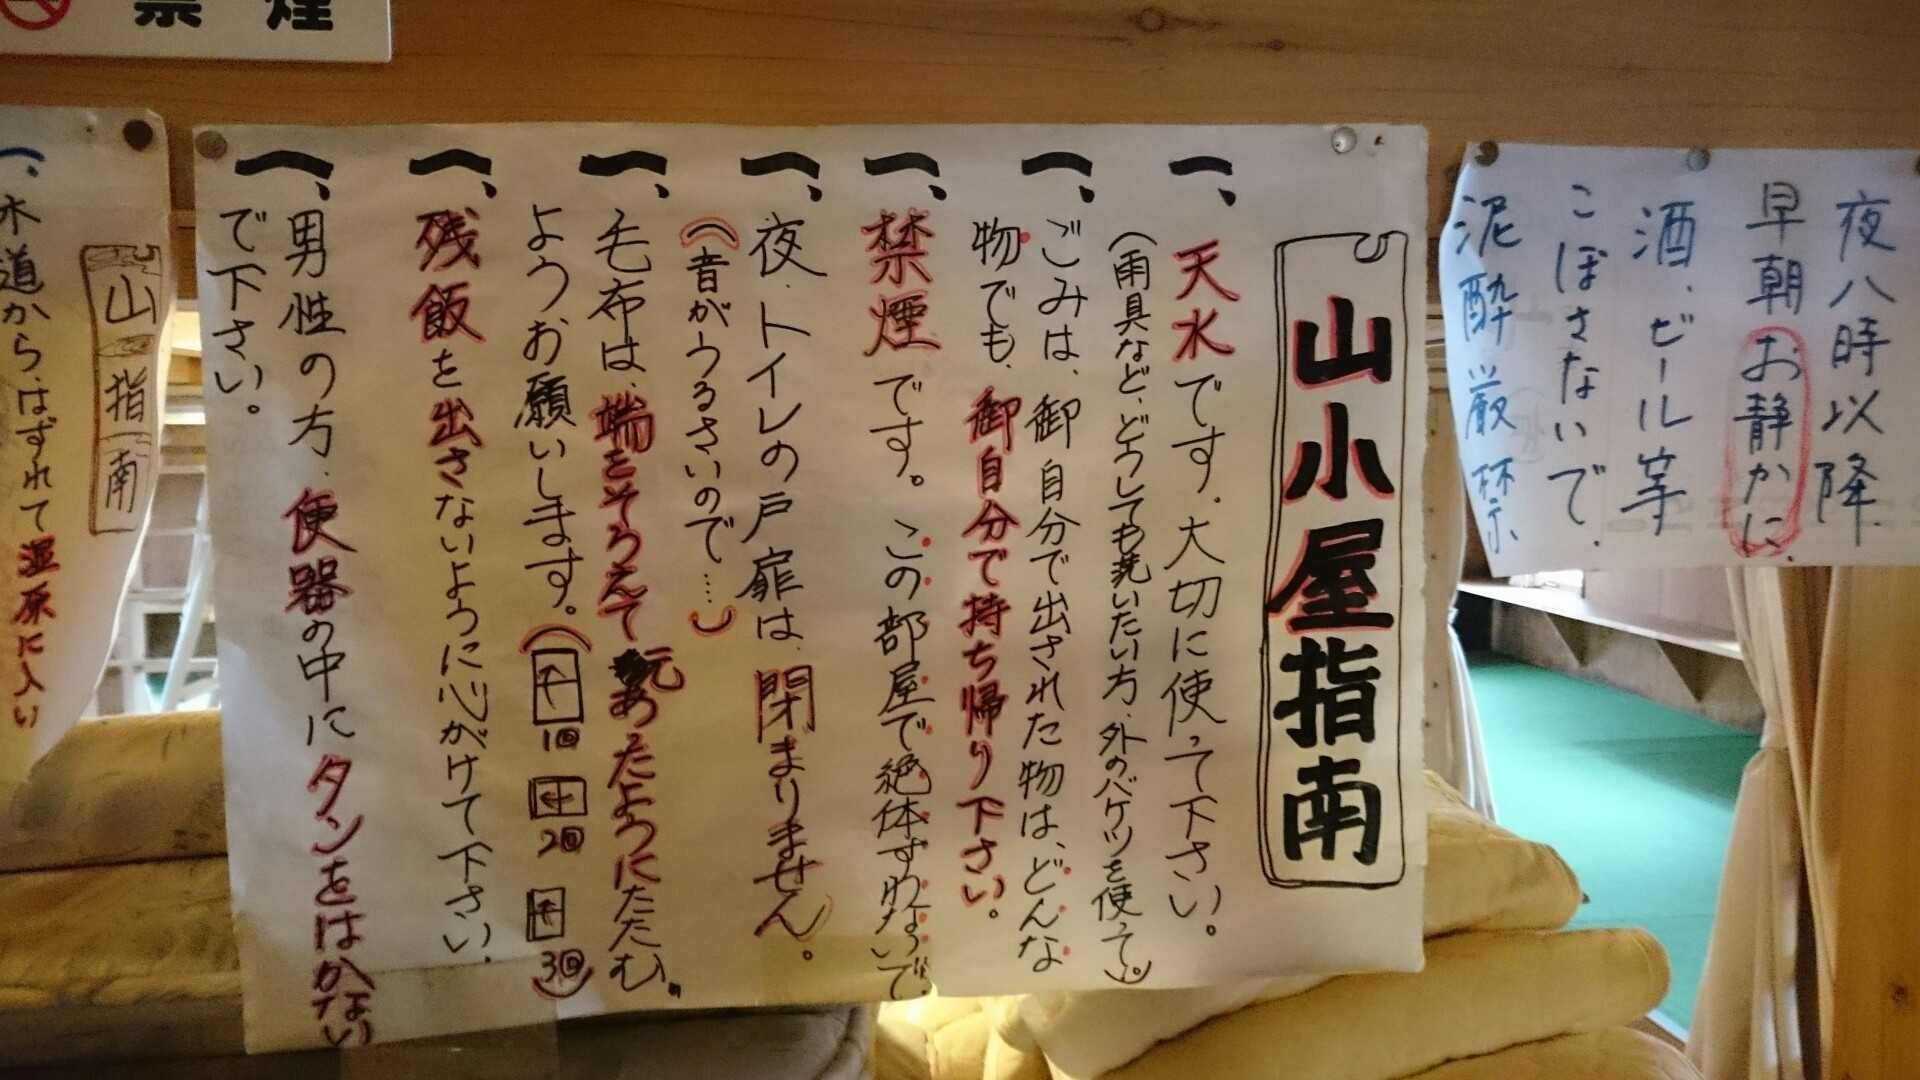 禁煙
夜八時以降、
早朝お静かに、
酒、ビール等
こぼさないで、
泥酔厳禁、
山小屋指南
一、天水です、大切に使って下さい。
(雨具など、どうしても洗いたい方、外のバケツを使って。)
一、ごみは、御自分で出された物は、どんな
物でも、御自分で持ち帰り下さい。
一、禁煙です。この部屋で絶体すわないで。
一、夜、トイレの戸扉は、閉まりません。
(音がうるさいので…)
一、毛布は、端をそろえて元あったようにたたむ。
ようお願いします。(1回 2回 3回)
一、残飯を出さないように心がけて下さい、
一、男性の方、便器の中にタンをはかない
で下さい。
山指南
一、木道から、はずれて湿原に入い